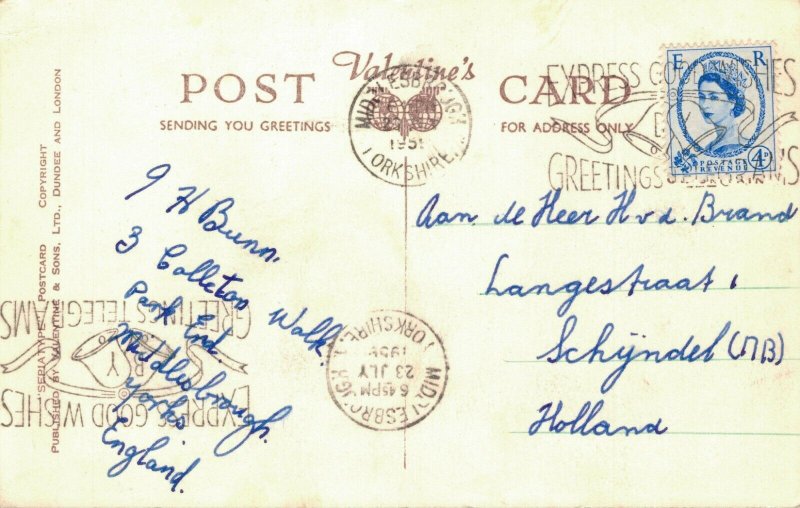 Valentine's
POST CARD
SENDING YOU GREETINGS
FOR ADDRESS ONLY
PUBLISHED BY VALENTINE & SONS, LTD., DUNDEE AND LONDON
POSTCARD COPYRIGHT
E R
POSTAGE
REVENUE
4D
YORKSHIRE
EXPRESS GOOD WISHES
BY
GREETINGS TELEGRAMS
J H Bunn,
3 Colleton Walk.
Park End
Middlesbrough.
Yorks
England.
Aan de Heer H v.d. Brand
Langestraat 1
Schijndel (NB)
Holland
MIDDLESBROUGH
YORKSHIRE
6 45 PM
23 JLY
EXPRESS GOOD WISHES
BY
GREETINGS TELEGRAMS